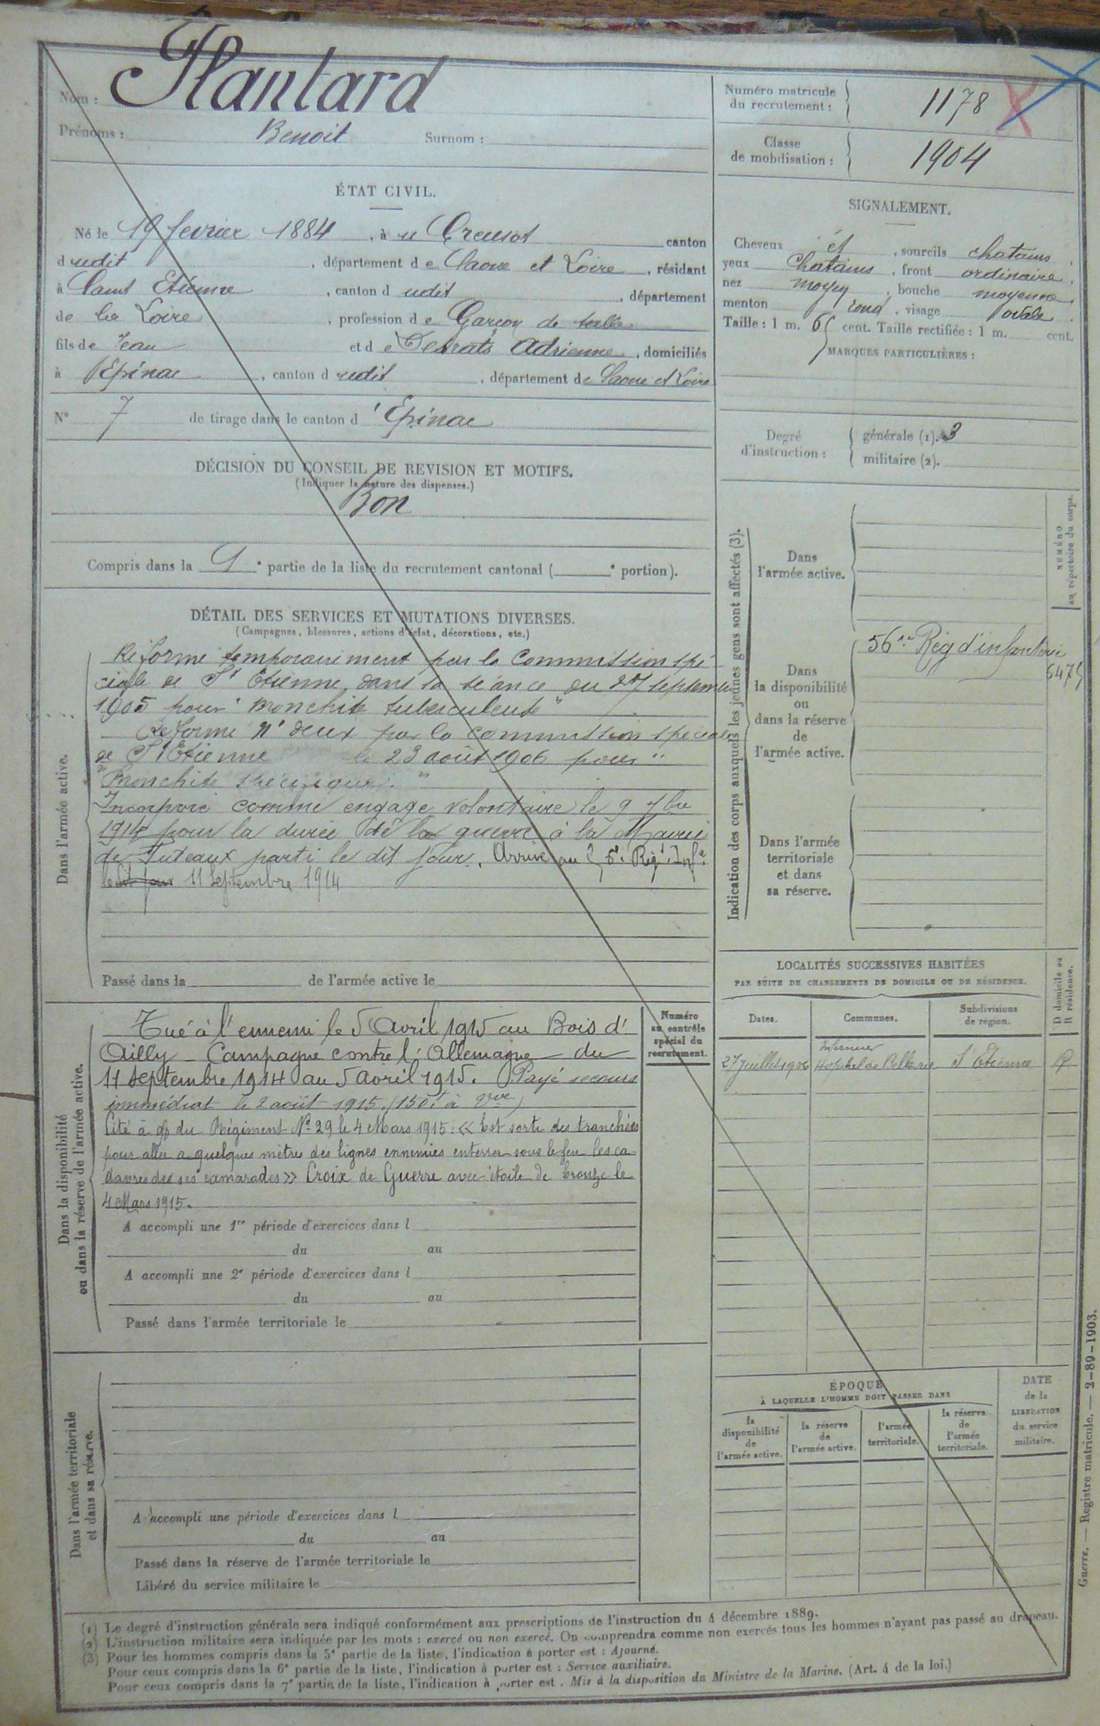 Nom : Plantard
Prénoms : Benoit Surnom :
Numéro matricule du recrutement : 1178
Classe de mobilisation : 1904
ÉTAT CIVIL.
Né le 19 février 1884, à Creusot canton
dudit, département de Saone et Loire, résidant
à Saint Etienne, canton dudit, département
de la Loire, profession de Garçon de salle
fils de Jean et de Adrienne, domiciliés
à Epinac, canton dudit, département de Saone et Loire
N° 7 de tirage dans le canton d'Epinac
SIGNALEMENT.
Cheveux et, sourcils chatains,
yeux chatains, front ordinaire,
nez moyen, bouche moyenne,
menton rond, visage ovale.
Taille : 1 m. 65 cent. Taille rectifiée : 1 m. cent.
MARQUES PARTICULIÈRES :
Degré d'instruction : générale (1). 3
militaire (2).
DÉCISION DU CONSEIL DE REVISION ET MOTIFS.
(Indiquer la nature des dispenses.)
Bon
Compris dans la 1e partie de la liste du recrutement cantonal ( e portion).
DÉTAIL DES SERVICES ET MUTATIONS DIVERSES.
(Campagnes, blessures, actions d'éclat, décorations, etc.)
Dans l'armée active.
Réformé temporairement par la Commission spé
ciale de St Etienne, dans sa séance du 27 septembre
1905 pour "Bronchite tuberculeuse"
Réformé N° deux par la commission spéciale
de St Etienne le 23 août 1906 pour "
Bronchite spécifique."
Incorporé comme engagé volontaire le 9 7bre
1914 pour la durée de la guerre à la Mairie
de Puteaux parti le dit jour. Arrivé au 56e Régt Infie
le dit jour 11 Septembre 1914
Passé dans la de l'armée active le
Indication des corps auxquels les jeunes gens sont affectés (3).
NUMÉRO au répertoire du corps.
Dans l'armée active.
Dans la disponibilité ou dans la réserve de l'armée active.
56me Rég d'infanterie 6475
Dans l'armée territoriale et dans sa réserve.
LOCALITÉS SUCCESSIVES HABITÉES
PAR SUITE DE CHANGEMENTS DE DOMICILE OU DE RÉSIDENCE.
Dates. Communes. Subdivisions de région. D domicile ou R résidence.
27 juillet 1906 infirmier Hôpital de Bellevue St Etienne R
Dans la disponibilité ou dans la réserve de l'armée active.
Numéro au contrôle spécial du recrutement.
Tué à l'ennemi le 5 Avril 1915 au Bois d'
Ailly – Campagne contre l'Allemagne – du
11 septembre 1914 au 5 avril 1915. Payé secours
immédiat le 2 août 1915. (150f à Vve)
Cité à du Régiment N° 29 le 4 Mars 1915 : « Est sorti des tranchées
pour aller à quelques mètres des lignes ennemies enterrer sous le feu les ca
davres de ses camarades » Croix de Guerre avec étoile de bronze le
4 Mars 1915.
A accompli une 1re période d'exercices dans l
du au
A accompli une 2e période d'exercices dans l
du au
Passé dans l'armée territoriale le
Dans l'armée territoriale et dans sa réserve.
A accompli une période d'exercices dans l
du au
Passé dans la réserve de l'armée territoriale le
Libéré du service militaire le
ÉPOQUE
À LAQUELLE L'HOMME DOIT PASSER DANS
la disponibilité de l'armée active. la réserve de l'armée active. l'armée territoriale. la réserve de l'armée territoriale.
DATE de la LIBÉRATION du service militaire.
Guerre. — Registre matricule. — 2-89-1903.
(1) Le degré d'instruction générale sera indiqué conformément aux prescriptions de l'instruction du 4 décembre 1889.
(2) L'instruction militaire sera indiquée par les mots : exercé ou non exercé. On comprendra comme non exercés tous les hommes n'ayant pas passé au drapeau.
(3) Pour les hommes compris dans la 5e partie de la liste, l'indication à porter est : Ajourné.
Pour ceux compris dans la 6e partie de la liste, l'indication à porter est : Service auxiliaire.
Pour ceux compris dans la 7e partie de la liste, l'indication à porter est : Mis à la disposition du Ministre de la Marine. (Art. 4 de la loi.)